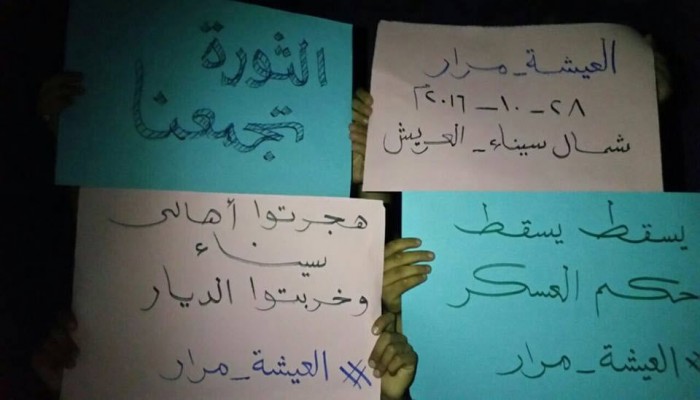 الثورة
تجمعنا
العيشة_مرار
٢٨_١٠_٢٠١٦م
شمال سيناء_العريش
هجرتوا أهالى
سيناء
وخربتوا الديار
#العيشة_مرار
يسقط يسقط
حكم العسكر
#العيشة_مرار